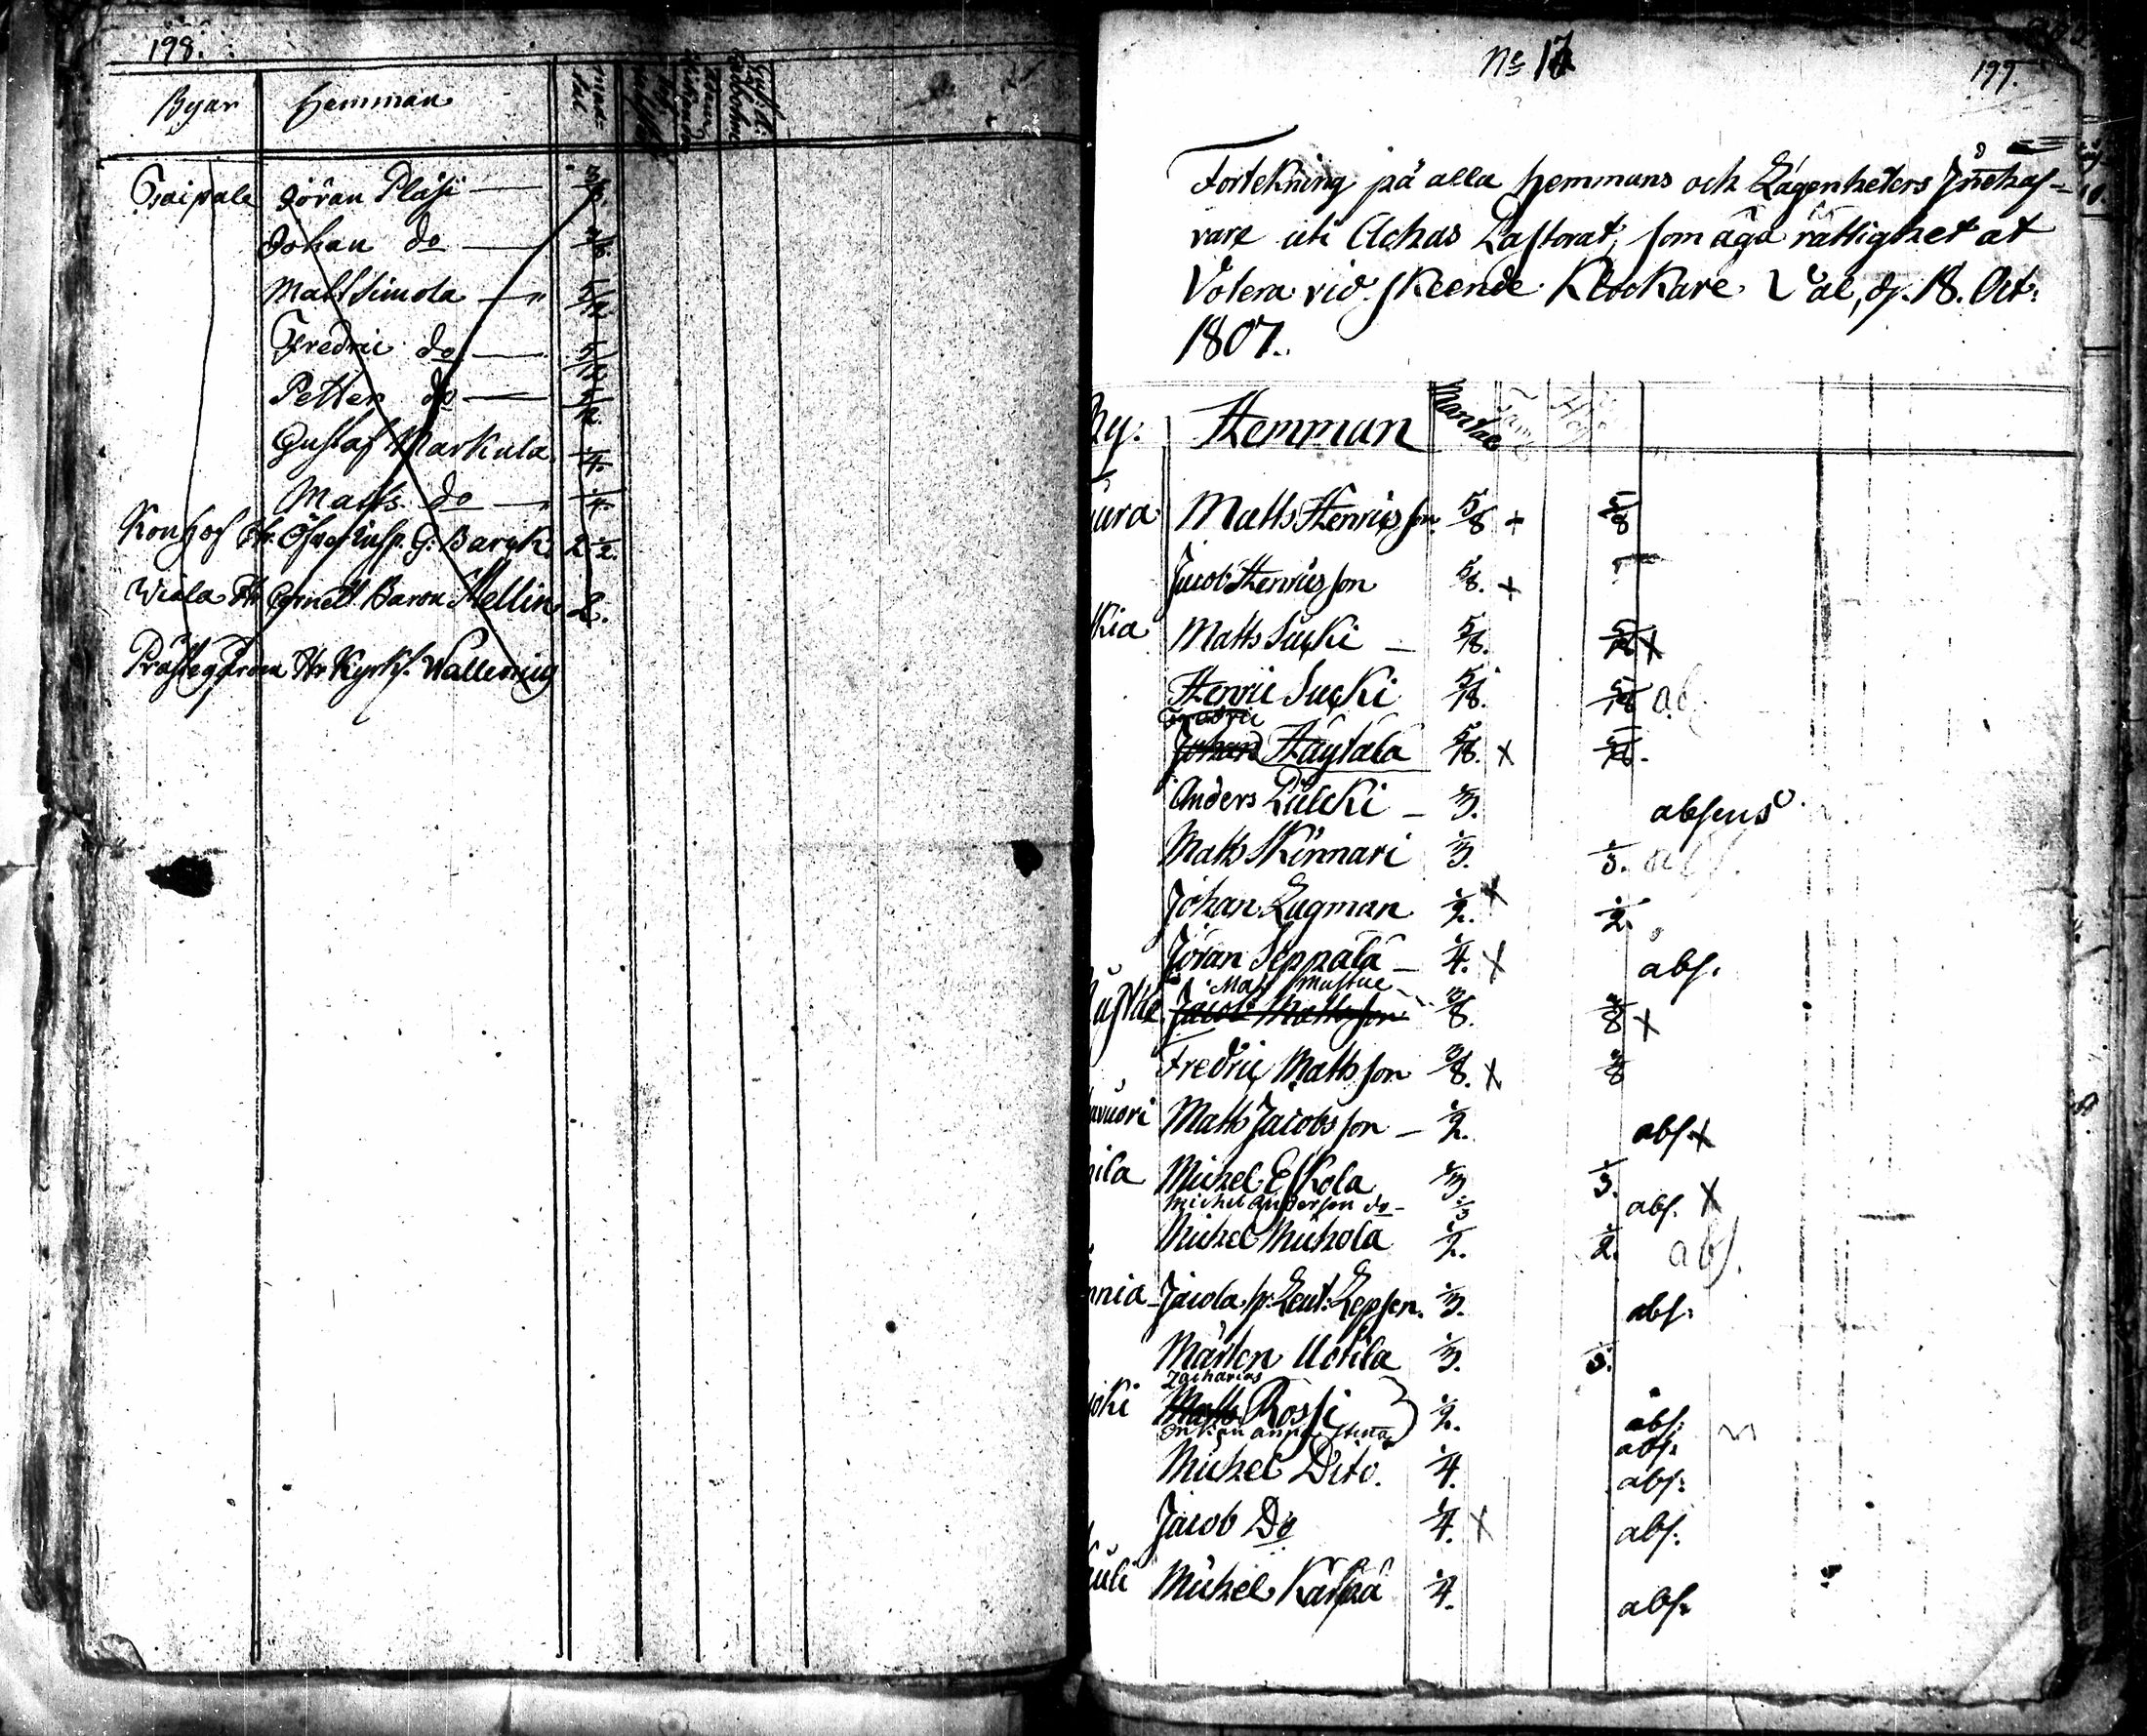 198.
Byar Hemman
Taipale Jöran Pläsi
Johan do
Matt Simola
Fredric do 5/12
Petter do
Gustaf Markula 1/4.
Matts do 1/4.
Konhof Hr G: Barck 2 1/2.
Wiala Hr Cornett Baron Mellin 2.
Prästegården Hr Kyrkh. Wallenius
No 17
199.
Förtekning på alla Hemmans och Lägenheters Innehaf-
vare uti Achas Pastorat, som äga rättighet at
Votera vid skeende Klockare Val, d. 18. Oct.
1807.
By: Hemman Mantal
Matts Henricsson 5/8 + 5/8
Jacob Henricsson 5/8. +
kia Matts Sucki 5/18. 5/18 x
Henric Sucki 5/18. 5/18
Fredric
Johan Häytälä 5/18. x 5/18.
Anders Pulcki 1/3. absens
Matts Skinnari 1/3. 1/3. abs.
Johan Lagman 1/2. x 1/2.
Jöran Seppälä 1/4. x abs.
Matts
Jacob Mattsson 3/8. 3/8 x
Fredric Mattsson 3/8. x 3/8
vuori Matts Jacobsson 1/2. abs. x
ila Michel Eskola 1/3 1/3.
Michel Andersson do 1/3 abs. x
Michel Mickola 1/2. 1/2. abs.
nnia Jacola, hr Leut: Lepsen. 1/3. abs.
Mårten Uotila 1/3. 1/3.
Zacharias
oki Matts Rossi 1/2. abs.
Enkan Anna Stina abs.
Michel Dito. 1/4. abs.
Jacob Do 1/4. x abs.
uli Michel Kärpä 1/4. abs.